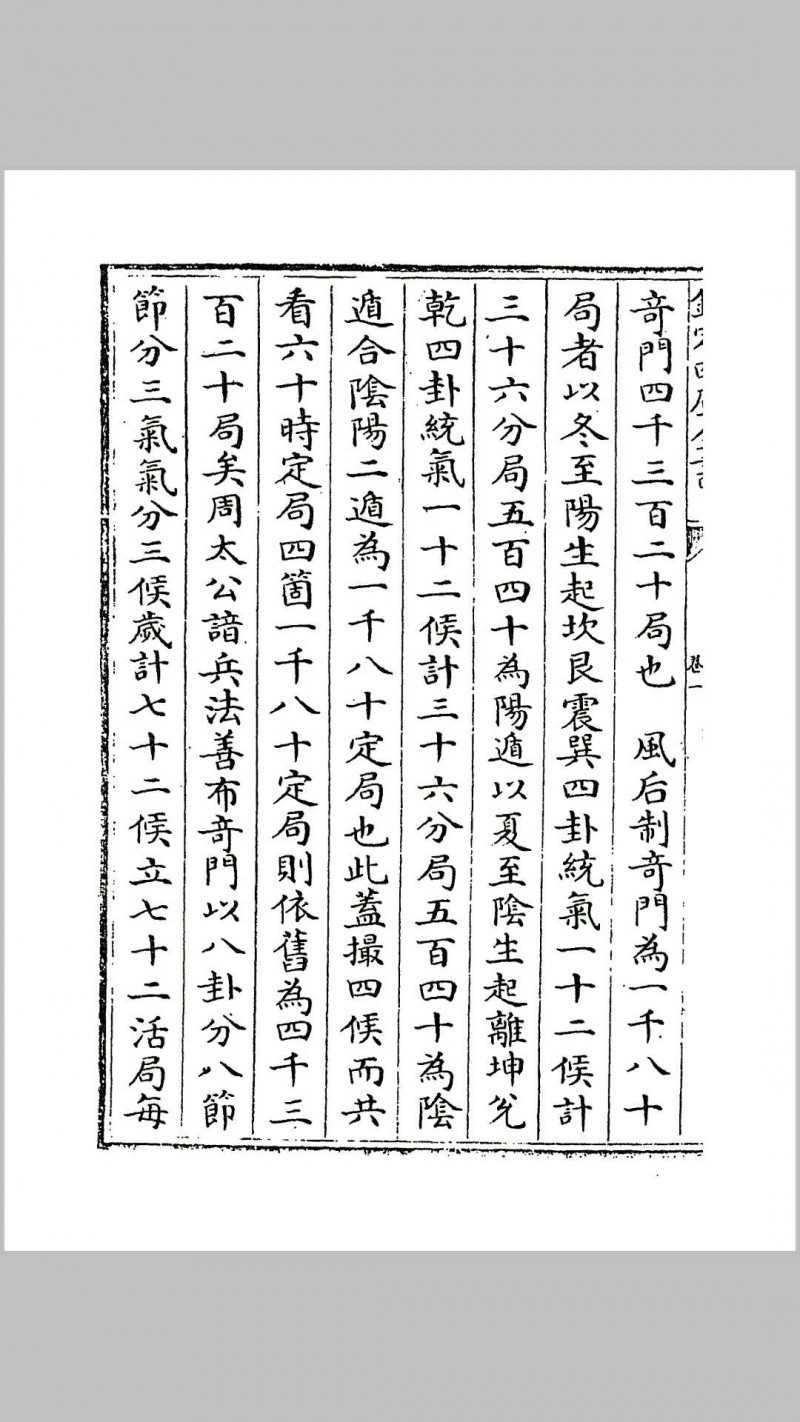 奇門四千三百二十局也　風后制奇門為一千八十
局者以冬至陽生起坎艮震巽四卦統氣一十二候計
三十六分局五百四十為陽遁以夏至陰生起離坤兌
乾四卦統氣一十二候計三十六分局五百四十為陰
遁合陰陽二遁為一千八十定局也此蓋撮四候而共
看六十時定局四箇一千八十定局則依舊為四千三
百二十局矣周太公諳兵法善布奇門以八卦分八節
節分三氣氣分三候歲計七十二候立七十二活局每